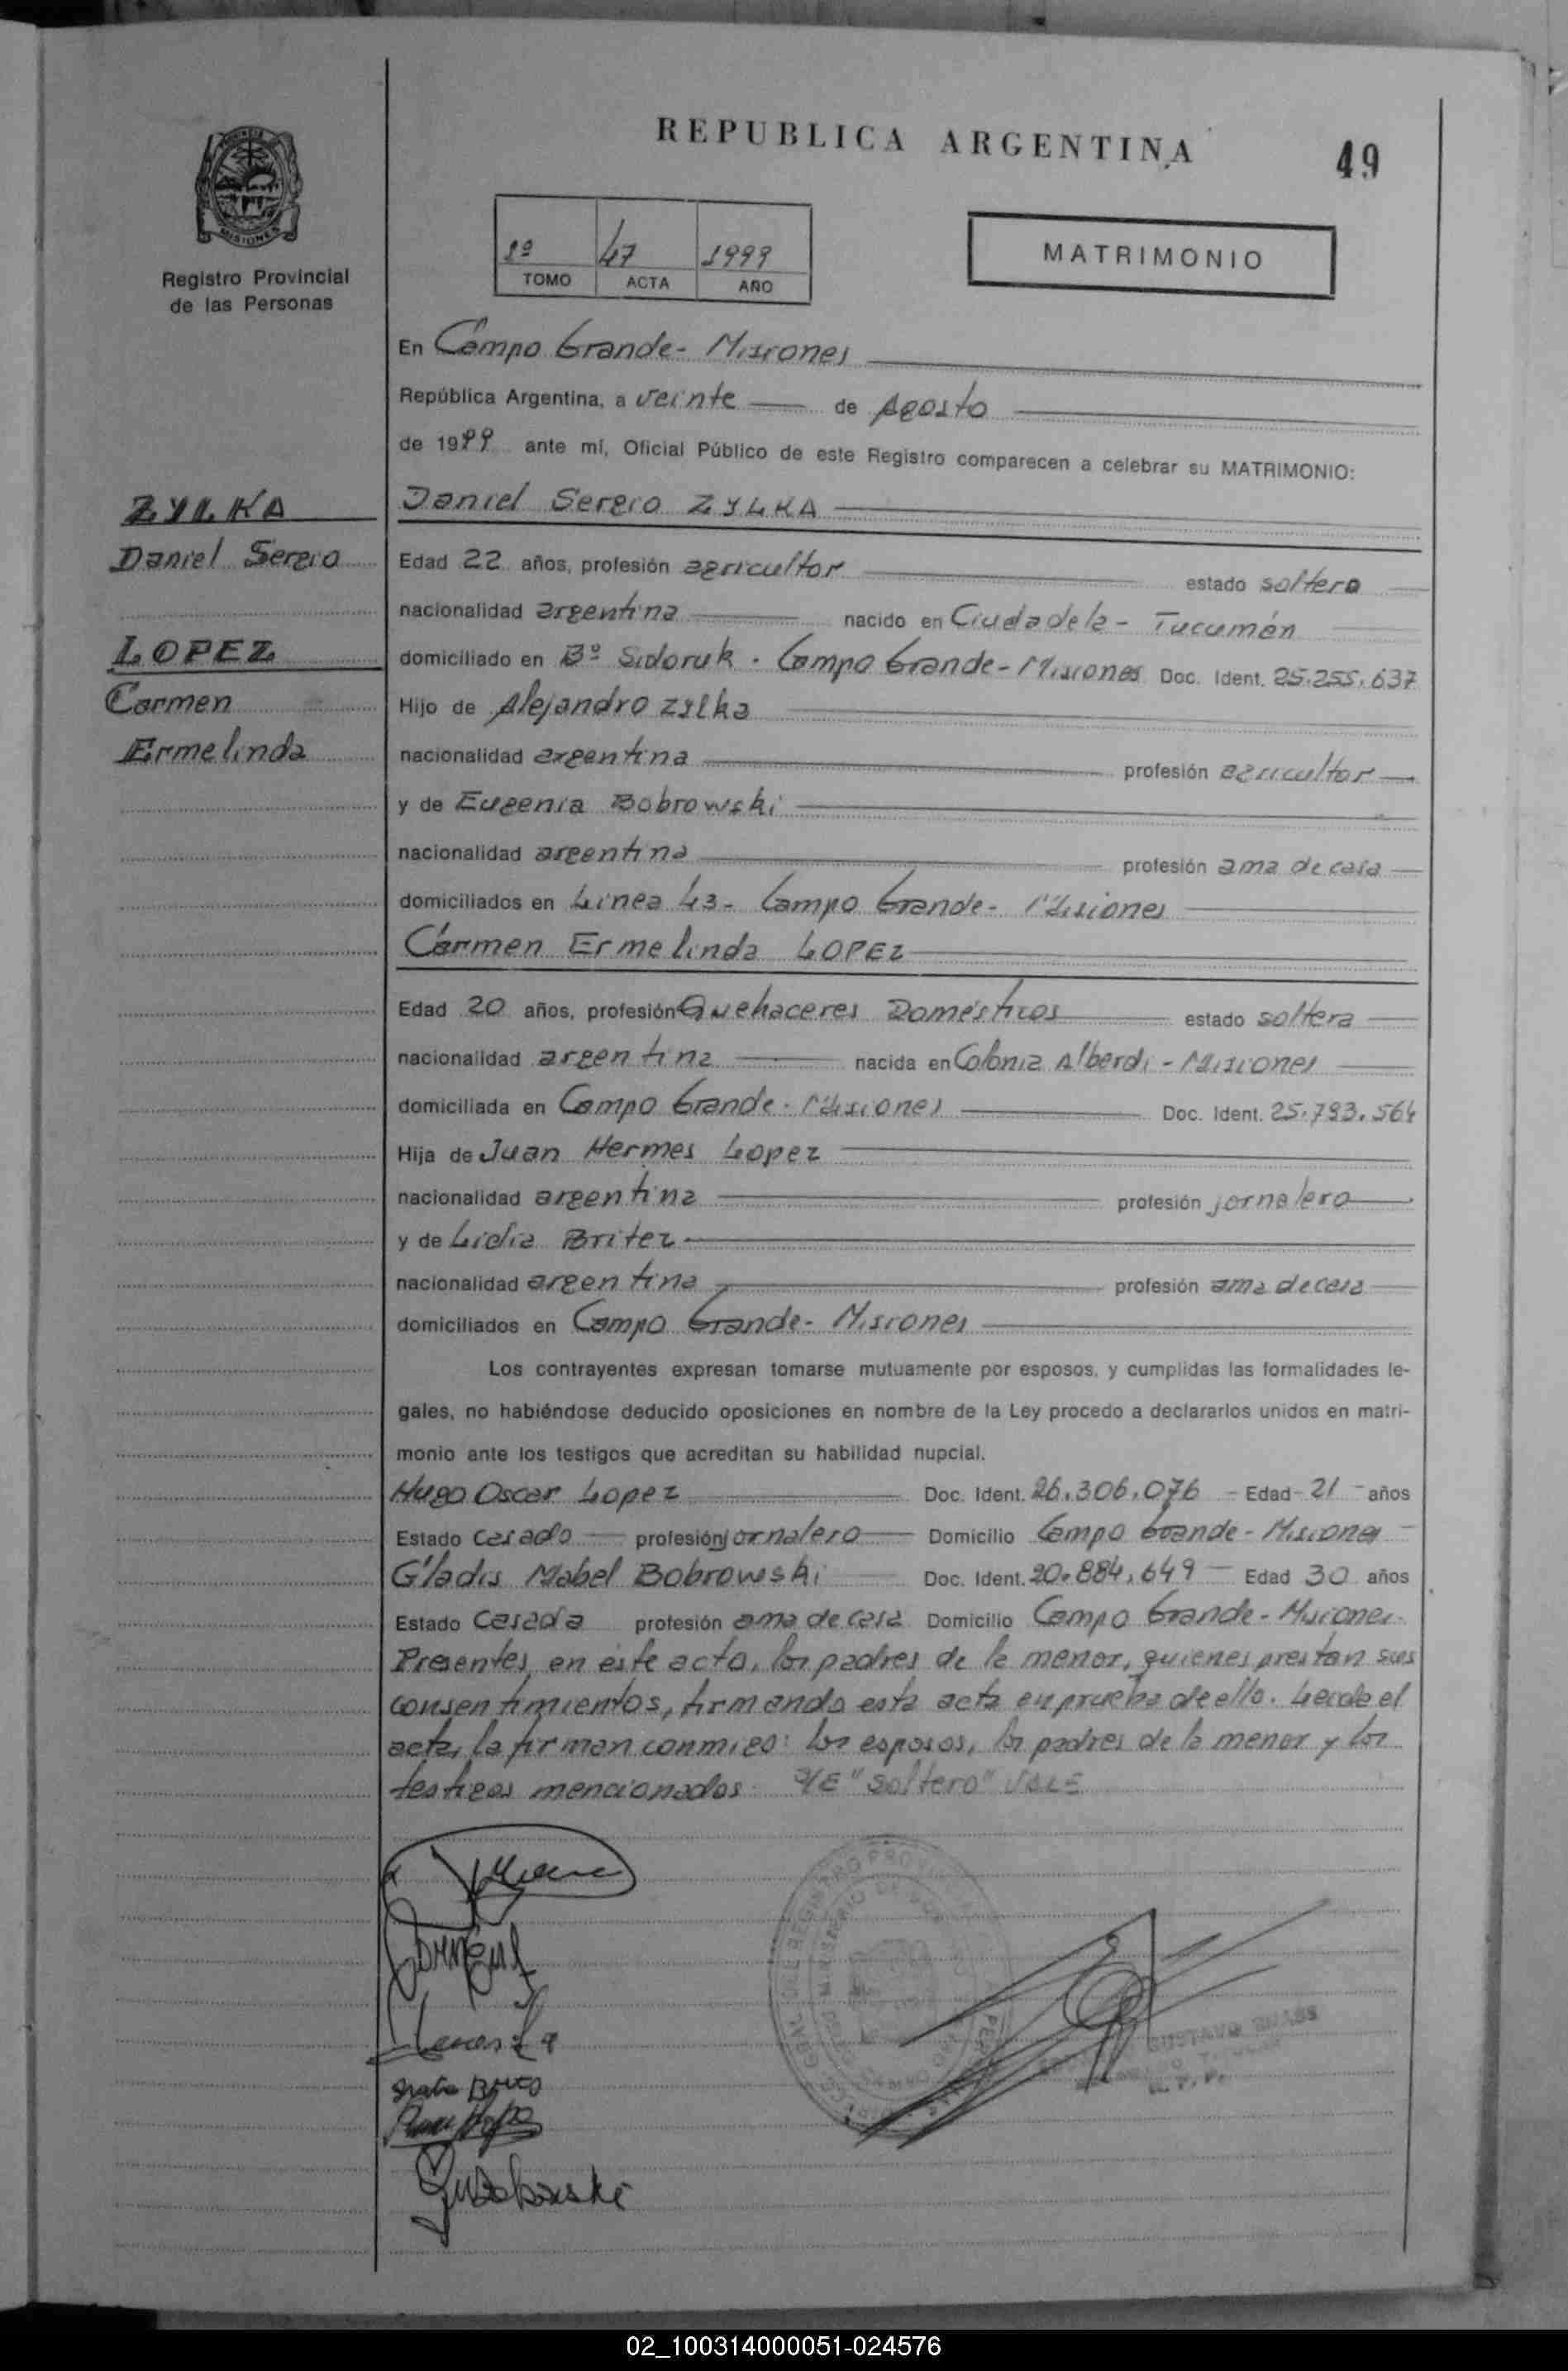 REPUBLICA ARGENTINA
49
PROVINCIA
MISIONES
Registro Provincial
de las Personas
1º 47 1999
TOMO ACTA AÑO
MATRIMONIO
En Campo Grande - Misiones
República Argentina, a veinte de Agosto
de 1999 ante mí, Oficial Público de este Registro comparecen a celebrar su MATRIMONIO:
ZYLKA
Daniel Sergio
LOPEZ
Carmen
Ermelinda
Daniel Sergio ZYLKA
Edad 22 años, profesión agricultor estado soltero
nacionalidad argentina nacido en Ciudadela - Tucumán
domiciliado en Bº Sidoruk - Campo Grande - Misiones Doc. Ident. 25.255.637
Hijo de Alejandro Zylka
nacionalidad argentina profesión agricultor
y de Eugenia Bobrowski
nacionalidad argentina profesión ama de casa
domiciliados en Linea 43 - Campo Grande - Misiones
Carmen Ermelinda LOPEZ
Edad 20 años, profesión Quehaceres Domésticos estado soltera
nacionalidad argentina nacida en Colonia Alberdi - Misiones
domiciliada en Campo Grande - Misiones Doc. Ident. 25.793.564
Hija de Juan Hermes Lopez
nacionalidad argentina profesión jornalero
y de Lidia Britez
nacionalidad argentina profesión ama de casa
domiciliados en Campo Grande - Misiones
Los contrayentes expresan tomarse mutuamente por esposos, y cumplidas las formalidades le-
gales, no habiéndose deducido oposiciones en nombre de la Ley procedo a declararlos unidos en matri-
monio ante los testigos que acreditan su habilidad nupcial.
Hugo Oscar Lopez Doc. Ident. 26.306.076 - Edad - 21 - años
Estado casado profesión jornalero Domicilio Campo Grande - Misiones
Gladis Mabel Bobrowski Doc. Ident. 20.884.649 Edad 30 años
Estado casada profesión ama de casa Domicilio Campo Grande - Misiones
Presentes en este acto, los padres de la menor, quienes prestan sus
consentimientos, firmando esta acta en prueba de ello. Leida el
acta, la firman conmigo: los esposos, los padres de la menor y los
testigos mencionados. S/E "soltero" VALE
GUSTAVO
02_100314000051-024576